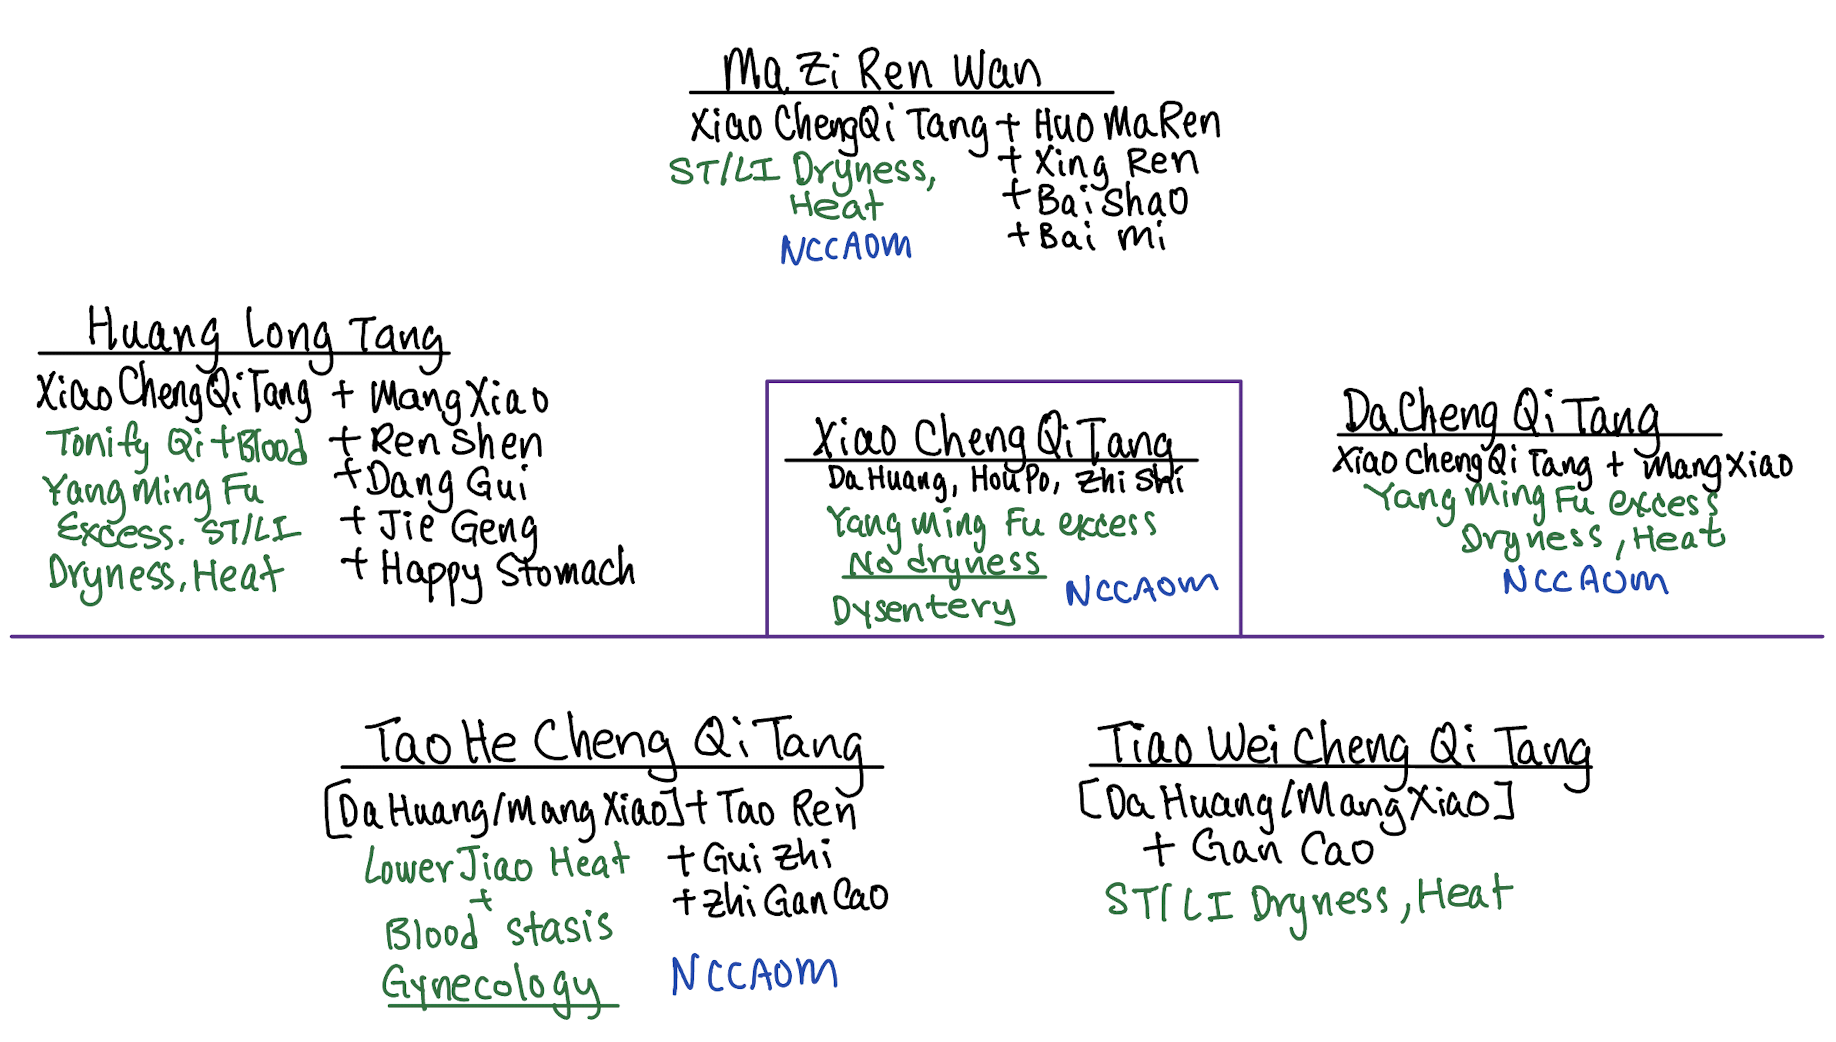 Ma Zi Ren Wan
Xiao Cheng Qi Tang + Huo Ma Ren
+ Xing Ren
+ Bai Shao
+ Bai Mi
ST/LI Dryness,
Heat
NCCAOM
Huang Long Tang
Xiao Cheng Qi Tang + Mang Xiao
+ Ren Shen
+ Dang Gui
+ Jie Geng
+ Happy Stomach
Tonify Qi + Blood
Yang Ming Fu
Excess. ST/LI
Dryness, Heat
Xiao Cheng Qi Tang
Da Huang, Hou Po, Zhi Shi
Yang Ming Fu excess
No dryness
Dysentery
NCCAOM
Da Cheng Qi Tang
Xiao Cheng Qi Tang + Mang Xiao
Yang Ming Fu excess
Dryness, Heat
NCCAOM
Tao He Cheng Qi Tang
[Da Huang/Mang Xiao] + Tao Ren
+ Gui Zhi
+ Zhi Gan Cao
Lower Jiao Heat
+
Blood stasis
Gynecology
NCCAOM
Tiao Wei Cheng Qi Tang
[Da Huang/Mang Xiao]
+ Gan Cao
ST/LI Dryness, Heat